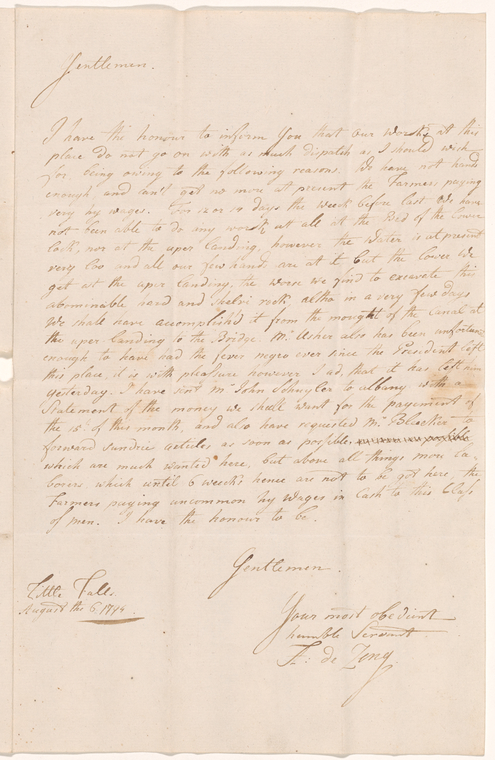 Gentlemen.
I have the honour to inform You that our works at this
place do not go on with as much dispatch as I should wish
for being owing to the following reasons. We have not hands
enough and can't get no more at present the Farmers paying
very hy wages. For 12 or 14 days the week before last We have
not been able to do any work at all at the Bed of the Lower
lock, nor at the uper Landing, however the Water is at present
very low and all our few hands are at it but the lower We
get at the uper landing, the worse we find to excavate this
abominable hard and Shelvi rock, altho in a very few days
We shall have accomplish'd it from the mought of the Canal at
the uper landing to the Bridge. Mr. Usher also has been unfortunate
enough to have had the fever negro ever since the President left
this place, it is with pleasure however I ad, that it has left him
yesterday. I have sent Mr. John Schuyler to albany with a
Statement of the money we shall want for the payement of
the 15 of this month, and also have requested Mr. Bleecker to
forward sundrie articles as soon as possible,
which are much wanted here, but above all things more la-
borers which until 6 weeks hence are not to be got here, the
Farmers paying uncommon hy Wages in Cash to this Class
of men. I have the honour to be.
Gentlemen.
Little Falls.
August the 6 1794.
Your most obedient
humble Servant
F: de Zeng